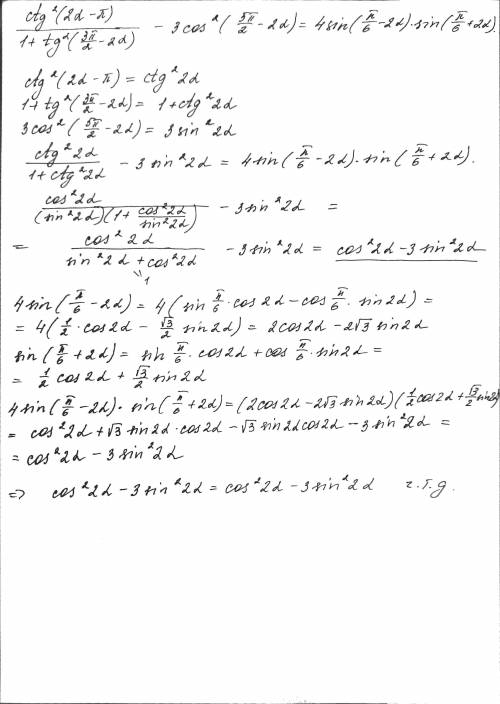 ctg²(2α-π)/(1+tg²(3π/2-2α)) - 3cos²(5π/2-2α) = 4sin(π/6-2α)·sin(π/6+2α).
ctg²(2α-π) = ctg²2α
1+tg²(3π/2-2α) = 1+ctg²2α
3cos²(5π/2-2α) = 3sin²2α
ctg²2α/(1+ctg²2α) - 3sin²2α = 4sin(π/6-2α)·sin(π/6+2α).
cos²2α/((sin²2α)(1+cos²2α/sin²2α)) - 3sin²2α =
= cos²2α/(sin²2α+cos²2α) - 3sin²2α = cos²2α-3sin²2α
1
4sin(π/6-2α) = 4(sin π/6·cos2α-cos π/6·sin2α) =
= 4(1/2·cos2α - √3/2 sin2α) = 2cos2α-2√3 sin2α
sin(π/6+2α) = sin π/6·cos2α+cos π/6·sin2α =
= 1/2 cos2α + √3/2 sin2α
4sin(π/6-2α)·sin(π/6+2α) = (2cos2α-2√3 sin2α)(1/2cos2α+√3/2 sin2α)
= cos²2α+√3 sin2α·cos2α-√3 sin2αcos2α-3sin²2α =
= cos²2α-3sin²2α
=> cos²2α-3sin²2α = cos²2α-3sin²2α ч.т.д.